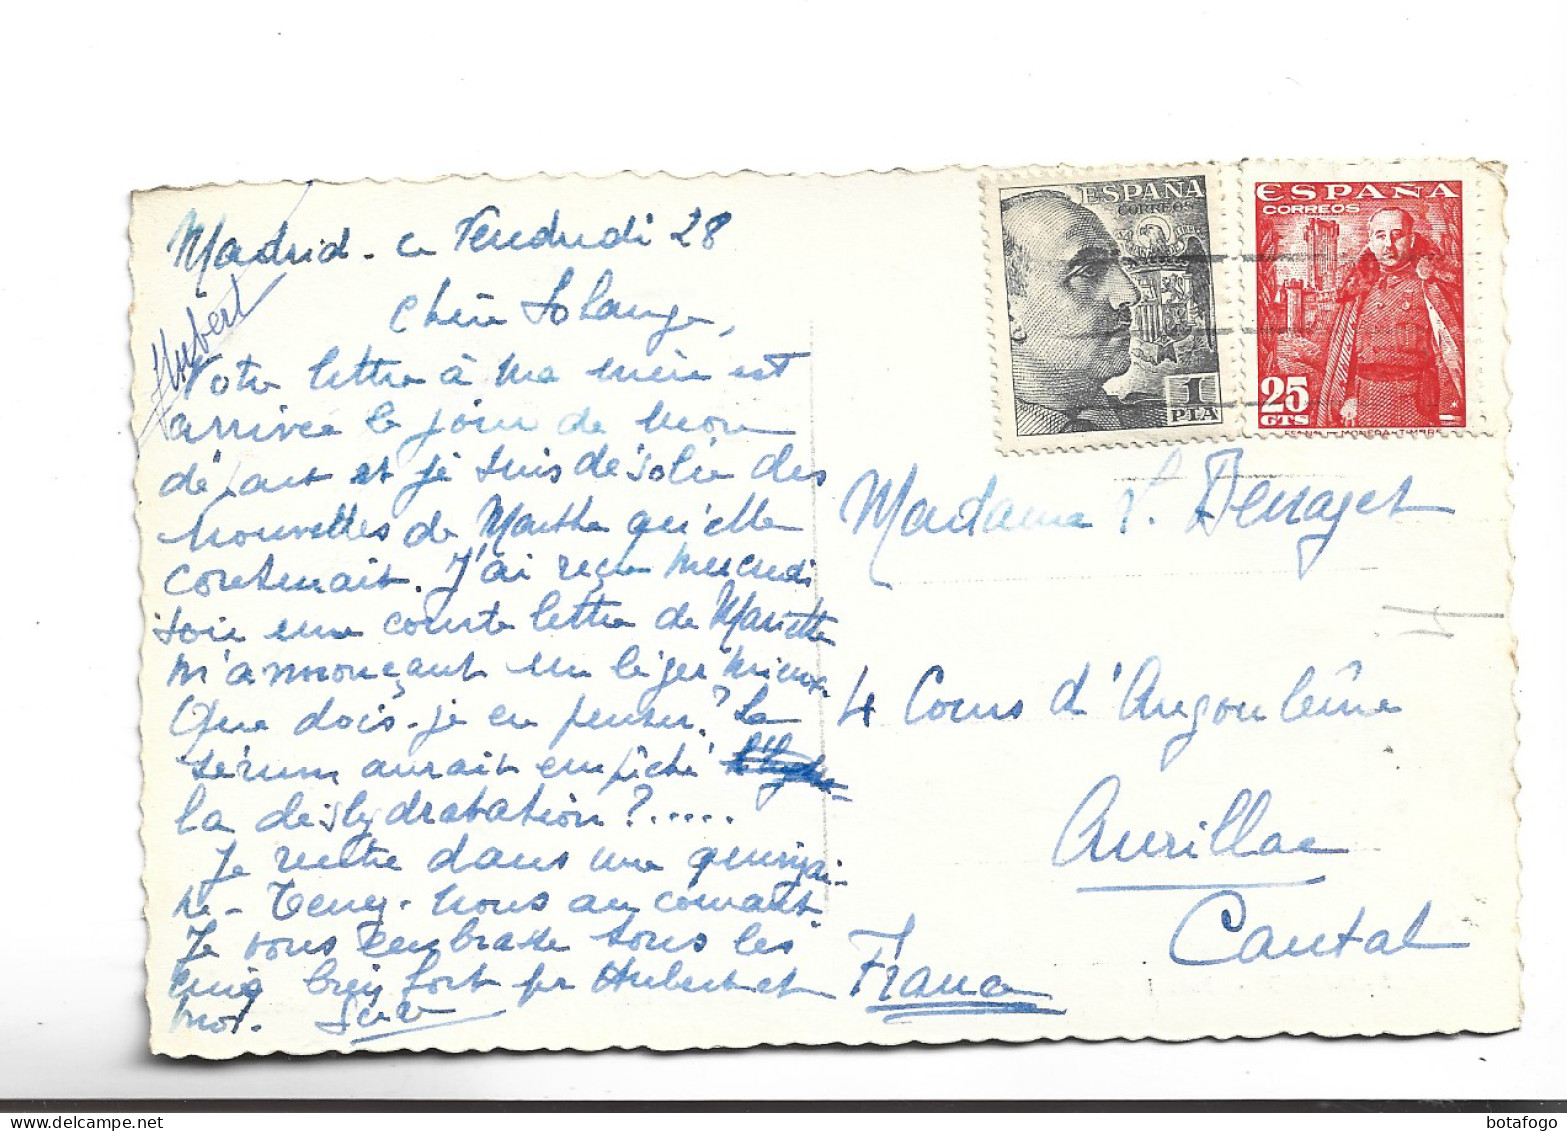 Madrid - ce Vendredi 28
Chère Solange,
Votre lettre à ma mère est
arrivée le jour de mon
départ et je suis désolée des
nouvelles de Marthe qu'elle
contenait. J'ai reçu mercredi
soir une courte lettre de Mariette
m'annonçant un léger mieux.
Que dois-je en penser? Le
sérum aurait empêché
la déshydratation?.....
Je rentre dans une quinzai-
ne - Tenez-nous au courant.
Je vous embrasse tous les
cinq bien fort pr Hubert et
moi.
Hubert
ESPAÑA
CORREOS
1
PTA
ESPAÑA
CORREOS
25
CTS
Madame
4 Cours d'Angoulême
Aurillac
Cantal
France
botafogo